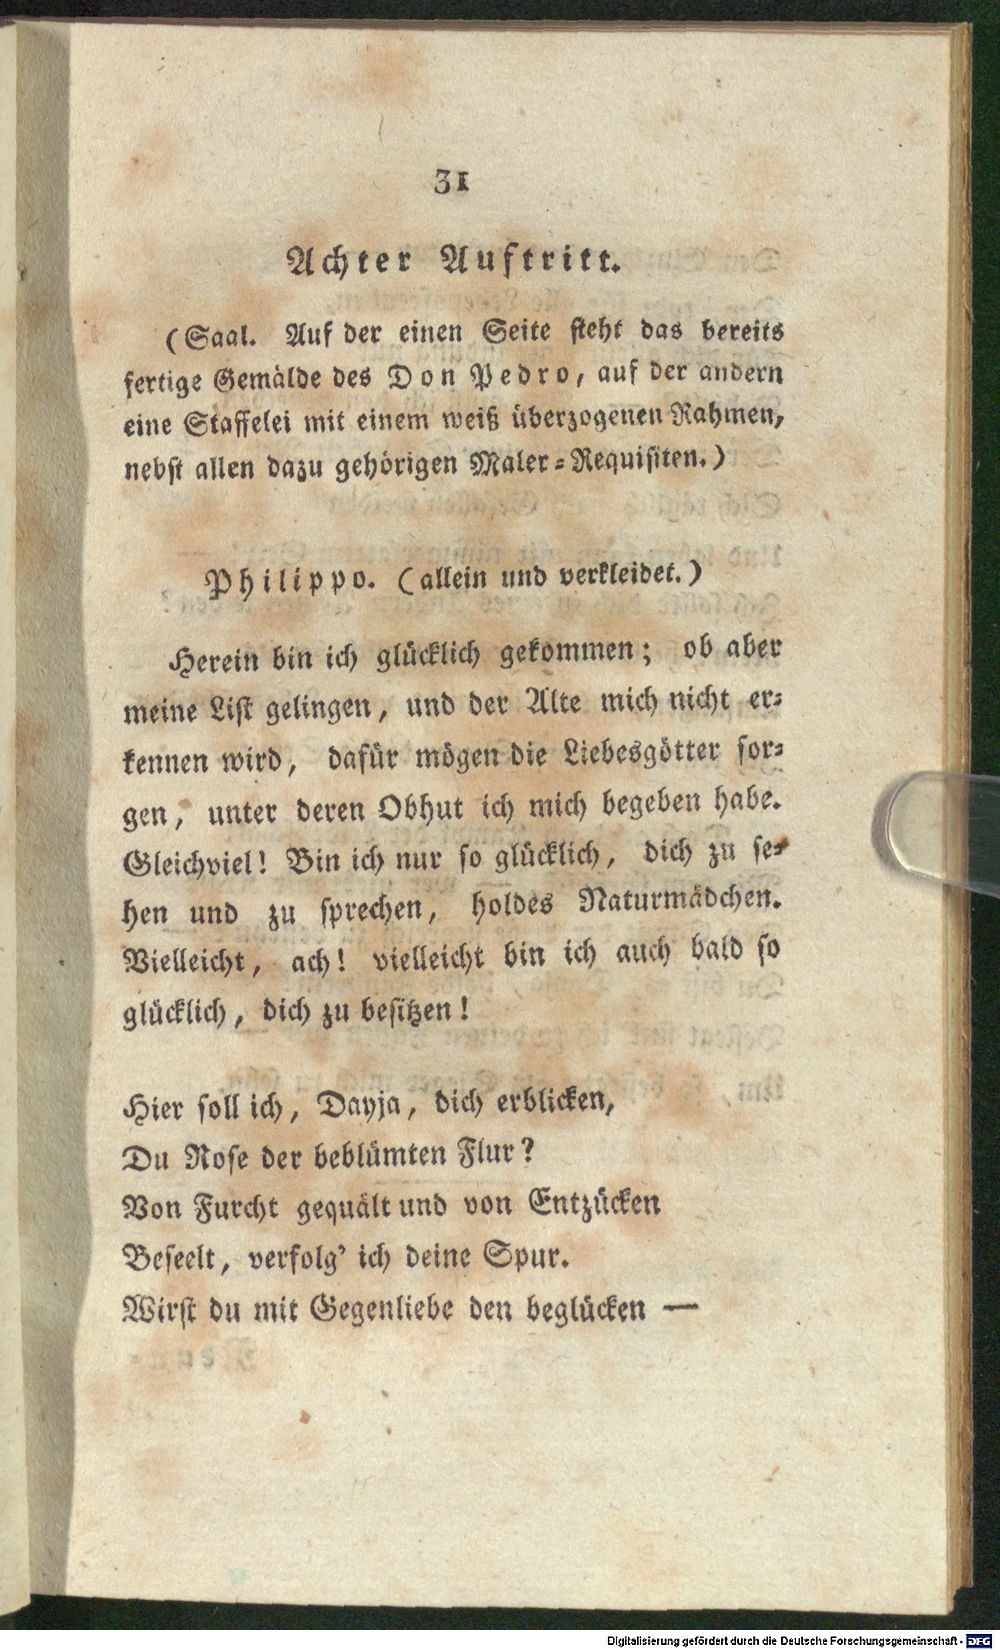 31
Achter Auftritt.
(Saal. Auf der einen Seite steht das bereits
fertige Gemälde des Don Pedro, auf der andern
eine Staffelei mit einem weiß überzogenen Rahmen,
nebst allen dazu gehörigen Maler=Requisiten.)
Philippo. (allein und verkleidet.)
Herein bin ich glücklich gekommen; ob aber
meine List gelingen, und der Alte mich nicht er=
kennen wird, dafür mögen die Liebesgötter sor=
gen, unter deren Obhut ich mich begeben habe.
Gleichviel! Bin ich nur so glücklich, dich zu se=
hen und zu sprechen, holdes Naturmädchen.
Vielleicht, ach! vielleicht bin ich auch bald so
glücklich, dich zu besitzen!
Hier soll ich, Dayja, dich erblicken,
Du Rose der beblümten Flur?
Von Furcht gequält und von Entzücken
Beseelt, verfolg' ich deine Spur.
Wirst du mit Gegenliebe den beglücken —
Digitalisierung gefördert durch die Deutsche Forschungsgemeinschaft - DFG